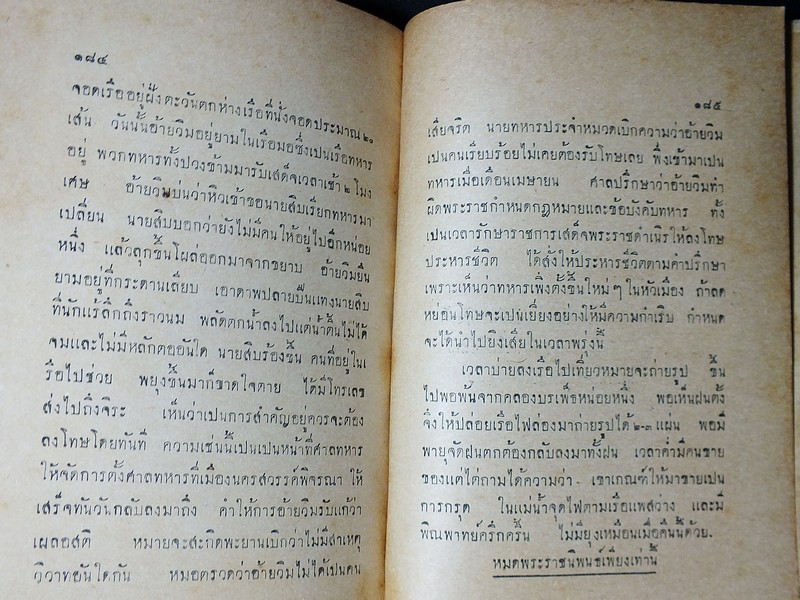 ๑๘๔
จอดเรืออยู่ฝั่งตะวันตกห่างเรือที่นั่งจอดประมาณ ๒๐
เส้น วันนั้นอ้ายวิมอยู่ยามในเรือมอซึ่งเป็นเรือทหาร
อยู่ พวกทหารทั้งปวงข้ามมารับเสด็จเวลาเช้า ๒ โมง
เศษ อ้ายวิมบ่นว่าหิวเข้าขอนายสิบเรียกทหารมา
เปลี่ยน นายสิบบอกว่ายังไม่มีคนให้อยู่ไปอีกหน่อย
หนึ่ง แล้วลุกขึ้นโผล่ออกมาจากขยาบ อ้ายวิมยืน
ยามอยู่ที่กระดานเลียบ เอาดาพปลายปืนแทงนายสิบ
ที่นักแร้ลึกถึงราวนม พลัดตกน้ำลงไปแต่น้ำตื้นไม่ได้
จมและไม่มีหลักตออันใด นายสิบร้องขึ้น คนที่อยู่ในเ
รือไปช่วย พยุงขึ้นมาก็ขาดใจตาย ได้มีโทรเลข
ส่งไปถึงจิระ เห็นว่าเป็นการสำคัญอยู่ควรจะต้อง
ลงโทษโดยทันที ความเช่นนี้เปนเปนหน้าที่ศาลทหาร
ให้จัดการตั้งศาลทหารที่เมืองนครสวรรค์พิจรณา ให้
เสร็จทันวันกลับลงมาถึง คำให้การอ้ายวิมรับแก้ว่า
เผลอสติ หมายจะสะกิดพะยานเบิกว่าไม่มีสาเหตุ
วิวาทอันใดกัน หมอตรวดว่าอ้ายวิมไม่ได้เป็นคน
๑๘๕
เสียจริต นายทหารประจำหมวดเบิกความว่าอ้ายวิม
เปนคนเรียบร้อยไม่เคยต้องรับโทษเลย พึ่งเข้ามาเปน
ทหารเมื่อเดือนเมษายน ศาลปรึกษาว่าอ้ายวิมทำ
ผิดพระราชกำหนดกฎหมายและข้อบังคับทหาร ทั้ง
เป็นเวลารักษาราชการเสด็จพระราชดำเนิรให้ลงโทษ
ประหารชีวิต ได้สั่งให้ประหารชีวิตตามคำปรึกษา
เพราะเห็นว่าทหารเพิ่งตั้งขึ้นใหม่ๆ ในหัวเมือง ถ้าลด
หย่อนโทษจะเปนเยี่ยงอย่างให้มีความกำเริบ กำหนด
จะได้นำไปยิงเสียในเวลาพรุ่งนี้
เวลาบ่ายลงเรือไปเที่ยวหมายจะถ่ายรูป ขึ้น
ไปพอพ้นจากคลองบรเพ็ธหน่อยหนึ่ง พอเห็นฝนตั้ง
จึงให้ปล่อยเรือไฟล่องมาถ่ายรูปได้ ๒-๓ แผ่น พอมี
พายุจัดฝนตกต้องกลับลงมาทั้งฝน เวลาค่ำมีคนขาย
ของแต่ไต่ถามได้ความว่า เขาเกณฑ์ให้มาขายเปน
การกรุด ในแม่น้ำจุดไฟตามเรือแพสว่าง และมี
พิณพาทย์ครึกครื้น ไม่มียุงเหมือนเมื่อคืนนี้ด้วย.
หมดพระราชนิพนธ์เพียงเท่านี้